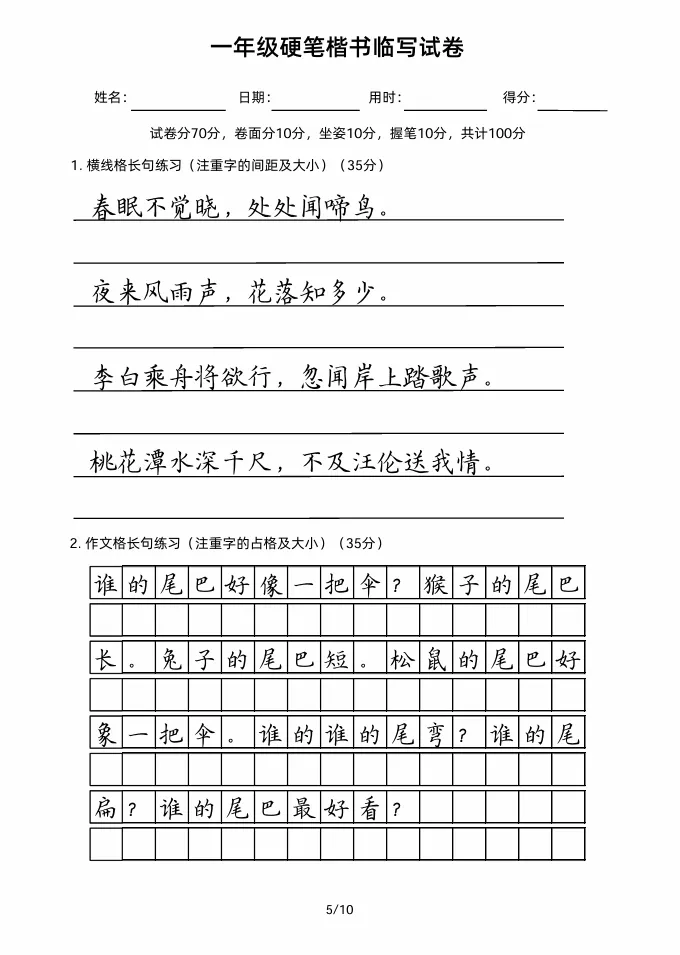 一年级硬笔楷书临写试卷
姓名: 日期: 用时: 得分:
试卷分70分，卷面分10分，坐姿10分，握笔10分，共计100分
1. 横线格长句练习（注重字的间距及大小）（35分）
春眠不觉晓，处处闻啼鸟。
夜来风雨声，花落知多少。
李白乘舟将欲行，忽闻岸上踏歌声。
桃花潭水深千尺，不及汪伦送我情。
2. 作文格长句练习（注重字的占格及大小）（35分）
谁的尾巴好像一把伞？猴子的尾巴
长。兔子的尾巴短。松鼠的尾巴好
象一把伞。谁的谁的尾弯？谁的尾
扁？谁的尾巴最好看？
5/10